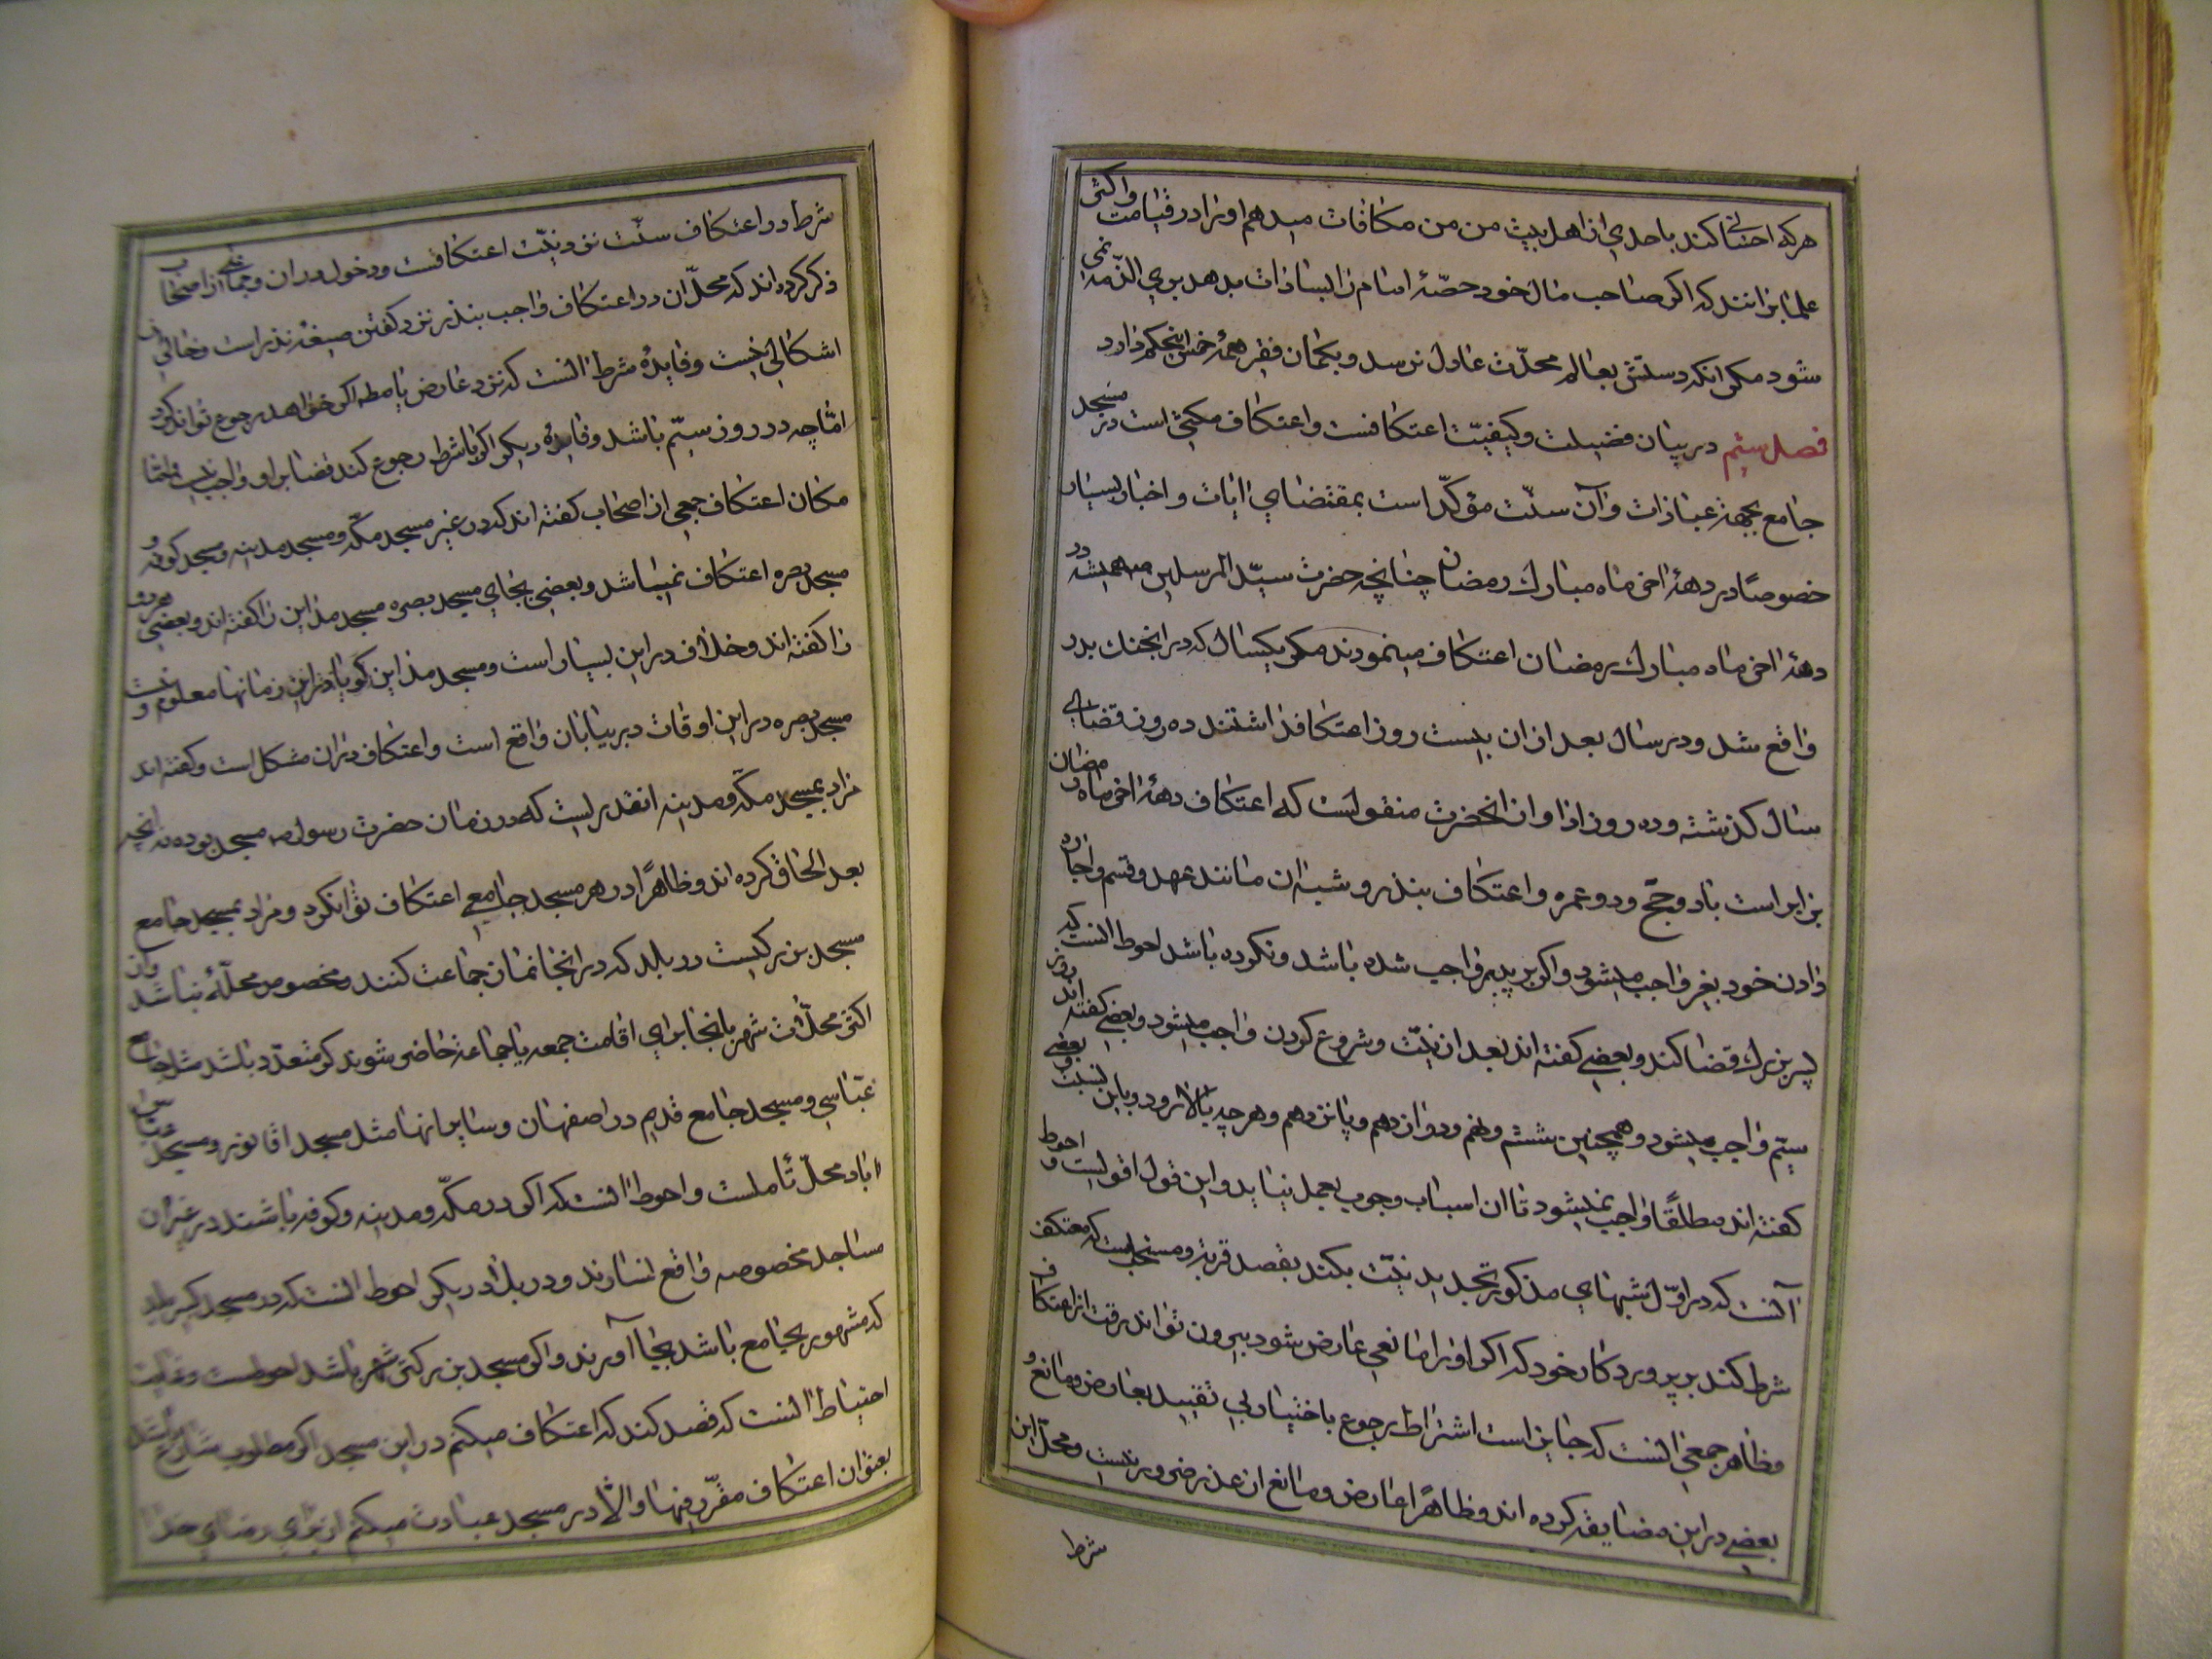 هرکه احسانی کند باحدی از اهل بیت من من مکافات میدهم او را در قیامت و اکثر
علما برانند که اکر صاحب مال خود حصّهٔ امام را بسادات بدهد بری الذّمه نمی
شود مکر انکه دستش بعالم محدّث عادل نرسد و بکمان فقیر همهٔ خمس اینحکم دارد
فصل سیّم در بیان فضیلت و کیفیّت اعتکافست و اعتکاف مکثی است در مسجد
جامع بجهة عبادات و آن سنّت مؤکّد است بمقتضای ایات و اخبار بسیار
خصوصًا در دههٔ اخر ماه مبارک رمضان چنانچه حضرت سیّد المرسلین ص همیشه در
دههٔ اخر ماه مبارک رمضان اعتکاف مینمودند مکر یکسال که در انجنک بدر
واقع شد و در سال بعد از ان بیست روز اعتکاف داشتند ده روز قضای
سال کذشته و ده روز ادا و از انحضرت منقولست که اعتکاف دههٔ اخر ماه رمضان
برابر است با دو حجّ و دو عمره و اعتکاف بنذر و شبه ان مانند عهد و قسم و اجاره
دادن خود بغیر واجب میشود و اکر بر پدر واجب شده باشد و نکرده باشد احوط انست که
پسر بزرک قضا کند و بعضی کفته اند بعد از نیّت و شروع کردن واجب میشود و بعضی کفته اند روز
سیّم واجب میشود و همچنین ششم و نهم و دوازدهم و پانزدهم و هرچه بالا رود و باین نسبت و بعضی
کفته اند مطلقًا واجب نمیشود تا ان اسباب وجوب بعمل نیاید و این قول اقویست و احوط
آنست که در اوّل شبهای مذکور تجدید نیّت بکند بقصد قربة و مستحبست که معتکف
شرط کند بر پروردکار خود که اکر او را مانعی عارض شود بیرون تواند رفت از اعتکاف
و ظاهر جمعی انست که جایز است اشتراط رجوع باختیار بی تقیید بعارض و مانع و
بعضی در این مضایقه کرده اند و ظاهرًا عارض و مانع از عذر ضرور نیست و محلّ این
شرط
شرط در اعتکاف سنّت نزد نیّت اعتکافست و دخول در ان و جماعتی از اصحاب
ذکر کرده اند که محلّ ان در اعتکاف واجب بنذر نزد کفتن صیغهٔ نذر است و خالی از
اشکالی نیست و فایدهٔ شرط انست که نزد عارض یا مطلقا اکر خواهد رجوع تواند کرد
امّا چه در روز سیّم باشد و فایدهٔ دیکر اکر با شرط رجوع کند قضا بر او واجب نیست و امّا
مکان اعتکاف جمعی از اصحاب کفته اند که در غیر مسجد مکّه و مسجد مدینه و مسجد کوفه و
مسجد بصره اعتکاف نمیباشد و بعضی بجای مسجد بصره مسجد مداین را کفته اند و بعضی هر دو
را کفته اند و خلاف در این بسیار است و مسجد مداین کویا در این زمانها معلوم نیست و
مسجد بصره در این اوقات در بیابان واقع است و اعتکاف در ان مشکل است و کفته اند
مراد بمسجد مکّه و مدینه انقدریست که در زمان حضرت رسول ص مسجد بوده نه انچه
بعد الحاق کرده اند و ظاهرًا در هر مسجد جامعی اعتکاف توانکرد و مراد بمسجد جامع
مسجد بزرکیست در بلد که در انجا نماز جماعت کنند و مخصوص محلّهٔ نباشد و از
اکثر محلّات شهر بانجا برای اقامت جمعه یا جماعة حاضر شوند کو متعدّد باشد مثل جامع
عبّاسی و مسجد جامع قدیم در اصفهان و سایر انها مثل مسجد اقانور و مسجد عبّاس
اباد محلّ تأملست و احوط انست که اکر در مکّه و مدینه و کوفه باشند در غیر ان
مساجد مخصوصه واقع نسازند و در بلاد دیکر احوط انست که در مسجد کبیر بلد
که مشهور بجامع باشد بجا آورند و اکر مسجد بزرکتر شهر باشد احوطست و غایت
احتیاط انست که قصد کند که اعتکاف میکنم در این مسجد اکر مطلوب شارع باشد
بعنوان اعتکاف مقرّر فبها و الّا در مسجد عبادت میکنم از برای رضای خدا